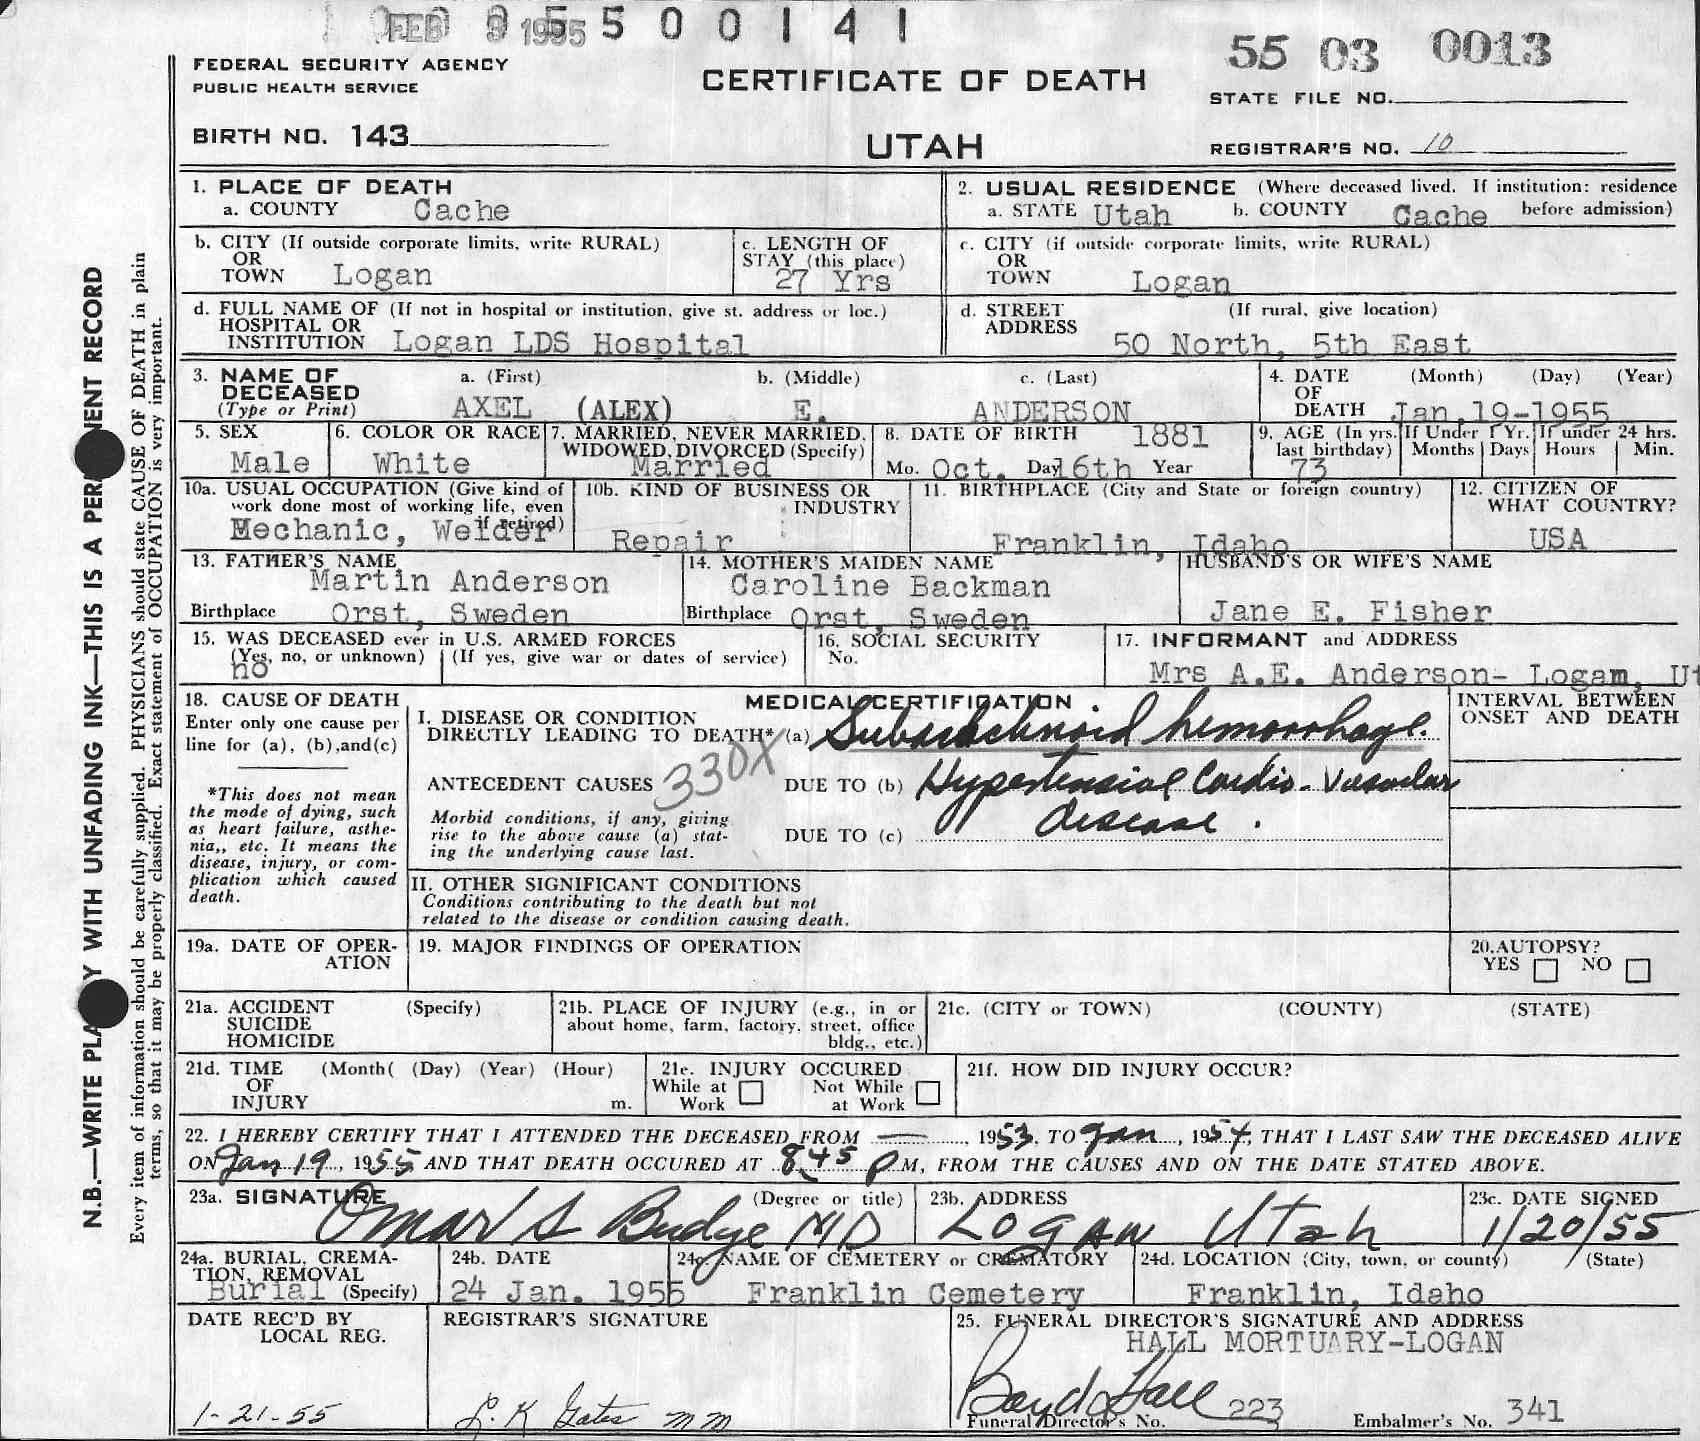 FEB 9 1955 5 5 0 0 1 4 1
55 03 0013
FEDERAL SECURITY AGENCY
PUBLIC HEALTH SERVICE
CERTIFICATE OF DEATH
STATE FILE NO.
BIRTH NO. 143
UTAH
REGISTRAR'S NO. 10
1. PLACE OF DEATH
a. COUNTY Cache
2. USUAL RESIDENCE (Where deceased lived. If institution: residence before admission)
a. STATE Utah b. COUNTY Cache
b. CITY (If outside corporate limits, write RURAL)
OR
TOWN Logan
c. LENGTH OF
STAY (this place)
27 Yrs
c. CITY (if outside corporate limits, write RURAL)
OR
TOWN Logan
d. FULL NAME OF (If not in hospital or institution, give st. address or loc.)
HOSPITAL OR
INSTITUTION Logan LDS Hospital
d. STREET (If rural, give location)
ADDRESS
50 North, 5th East
3. NAME OF a. (First) b. (Middle) c. (Last)
DECEASED
(Type or Print) AXEL (ALEX) E. ANDERSON
4. DATE (Month) (Day) (Year)
OF
DEATH Jan.19-1955
5. SEX
Male
6. COLOR OR RACE
White
7. MARRIED, NEVER MARRIED,
WIDOWED, DIVORCED (Specify)
Married
8. DATE OF BIRTH 1881
Mo. Oct. Day 16th Year
9. AGE (In yrs. last birthday) If Under 1 Yr. If under 24 hrs.
73 Months Days Hours Min.
10a. USUAL OCCUPATION (Give kind of
work done most of working life, even
if retired)
Mechanic, Welder
10b. KIND OF BUSINESS OR
INDUSTRY
Repair
11. BIRTHPLACE (City and State or foreign country)
Franklin, Idaho
12. CITIZEN OF
WHAT COUNTRY?
USA
13. FATHER'S NAME
Martin Anderson
Birthplace Orst, Sweden
14. MOTHER'S MAIDEN NAME
Caroline Backman
Birthplace Orst, Sweden
HUSBAND'S OR WIFE'S NAME
Jane E. Fisher
15. WAS DECEASED ever in U.S. ARMED FORCES
(Yes, no, or unknown) (If yes, give war or dates of service)
no
16. SOCIAL SECURITY
No.
17. INFORMANT and ADDRESS
Mrs A.E. Anderson- Logan, Ut
18. CAUSE OF DEATH
Enter only one cause per
line for (a), (b),and(c)
*This does not mean
the mode of dying, such
as heart failure, asthe-
nia,, etc. It means the
disease, injury, or com-
plication which caused
death.
MEDICAL CERTIFICATION
INTERVAL BETWEEN
ONSET AND DEATH
I. DISEASE OR CONDITION
DIRECTLY LEADING TO DEATH* (a) Subarachnoid hemorrhage.
ANTECEDENT CAUSES 330X DUE TO (b) Hypertensial Cardio-Vascular
disease.
Morbid conditions, if any, giving
rise to the above cause (a) stat-
ing the underlying cause last.
DUE TO (c)
II. OTHER SIGNIFICANT CONDITIONS
Conditions contributing to the death but not
related to the disease or condition causing death.
19a. DATE OF OPER-
ATION
19. MAJOR FINDINGS OF OPERATION
20.AUTOPSY?
YES NO
21a. ACCIDENT (Specify)
SUICIDE
HOMICIDE
21b. PLACE OF INJURY (e.g., in or
about home, farm, factory, street, office
bldg., etc.)
21c. (CITY or TOWN) (COUNTY) (STATE)
21d. TIME (Month( (Day) (Year) (Hour)
OF
INJURY m.
21e. INJURY OCCURED
While at Work Not While at Work
21f. HOW DID INJURY OCCUR?
22. I HEREBY CERTIFY THAT I ATTENDED THE DECEASED FROM —, 1953, TO Jan, 1954, THAT I LAST SAW THE DECEASED ALIVE
ON Jan 19, 1955 AND THAT DEATH OCCURED AT 8 45 P M, FROM THE CAUSES AND ON THE DATE STATED ABOVE.
23a. SIGNATURE (Degree or title)
Omar S Budge MD
23b. ADDRESS
LOGAN Utah
23c. DATE SIGNED
1/20/55
24a. BURIAL, CREMA-
TION, REMOVAL
Burial (Specify)
24b. DATE
24 Jan. 1955
24c. NAME OF CEMETERY or CREMATORY
Franklin Cemetery
24d. LOCATION (City, town, or county) (State)
Franklin, Idaho
DATE REC'D BY
LOCAL REG.
1-21-55
REGISTRAR'S SIGNATURE
L. K Gates mm
25. FUNERAL DIRECTOR'S SIGNATURE AND ADDRESS
HALL MORTUARY-LOGAN
Boyd Hall 223
Funeral Director's No. Embalmer's No. 341
N.B.—WRITE PLA Y WITH UNFADING INK—THIS IS A PER NENT RECORD
Every item of information should be carefully supplied. PHYSICIANS should state CAUSE OF DEATH in plain
terms, so that it may be properly classified. Exact statement of OCCUPATION is very important.